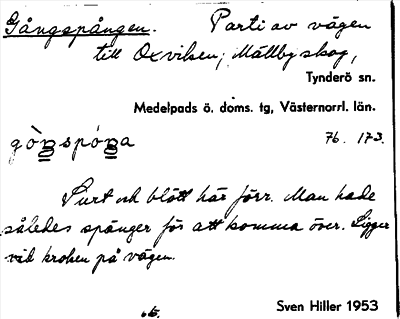 Gångspången. Parti av vägen
till Oxvilsen, Mällby skog,
Tynderö sn.
Medelpads ö. doms. tg, Västernorrl. län.
gòŋspóŋa 76. 173.
Surt och blött här förr. Man hade
således spänger för att komma över. Ligger
vid kroken på vägen.
Sven Hiller 1953